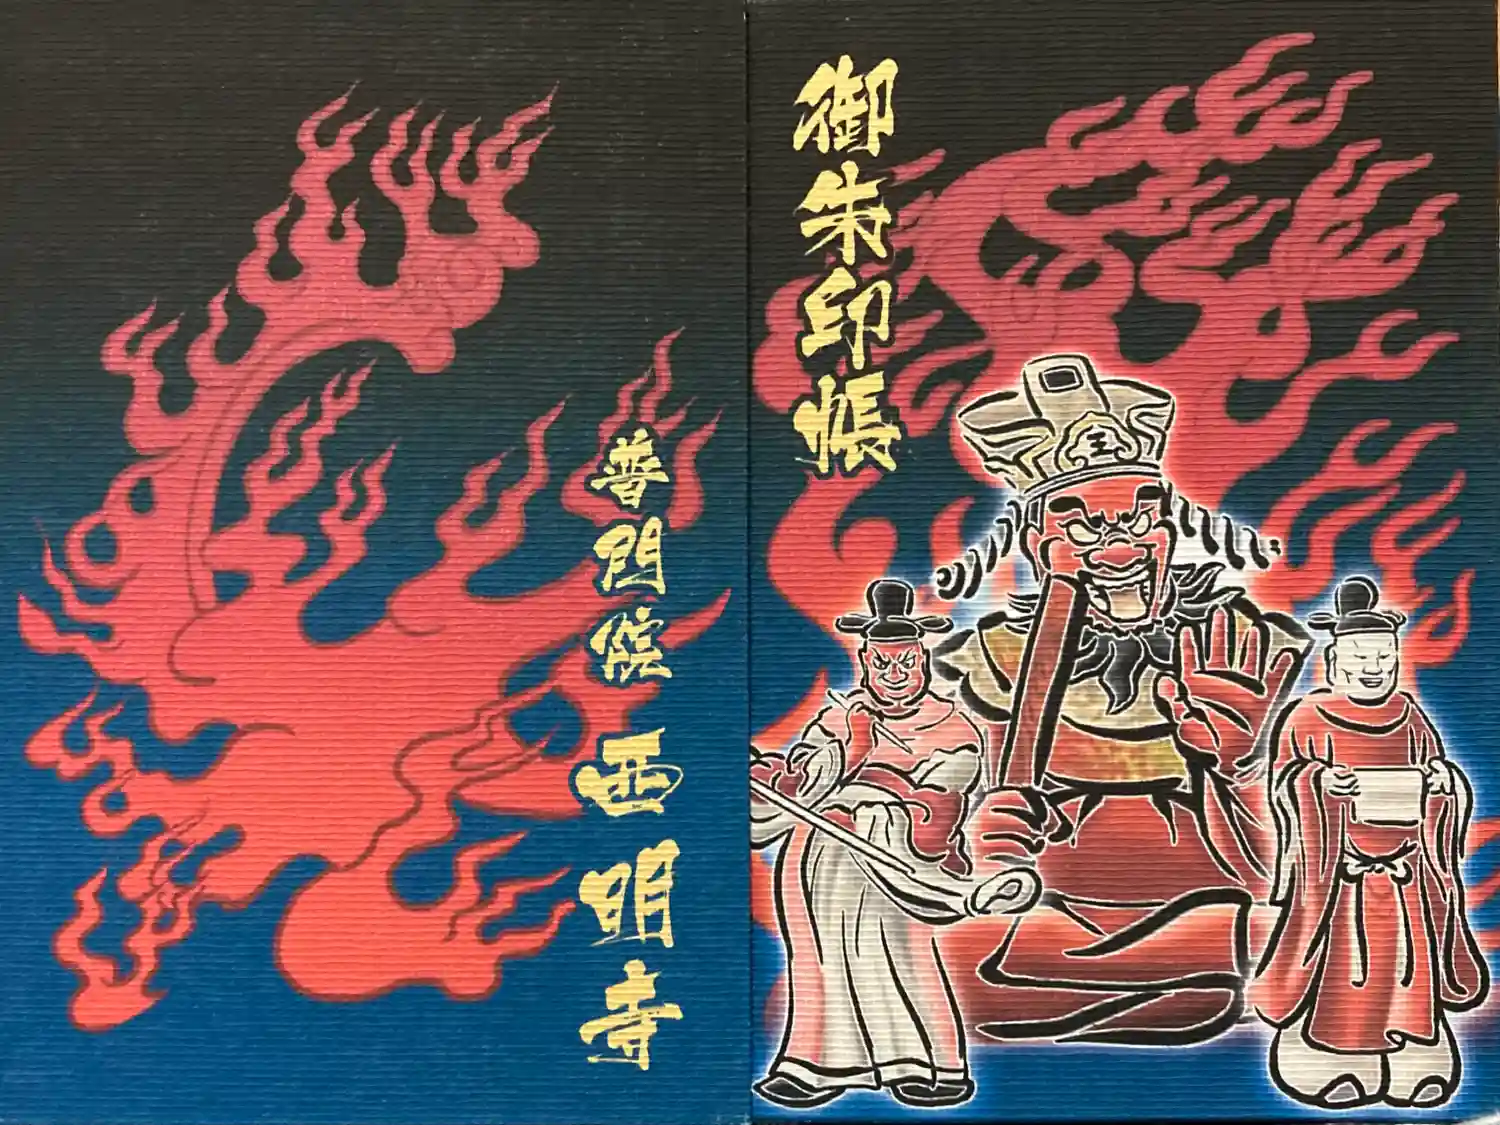 御朱印帳
普門院
西明寺
王